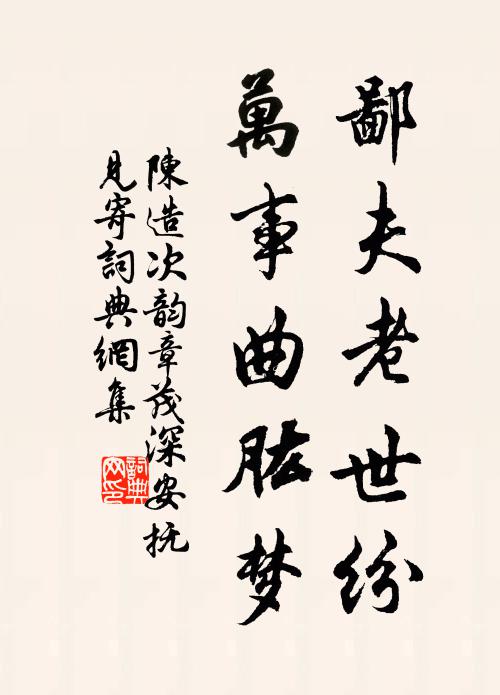 鄙夫老世纷
萬事曲肱梦
陳造次韵章茂深安抚
見寄詞典網集
詞典网印